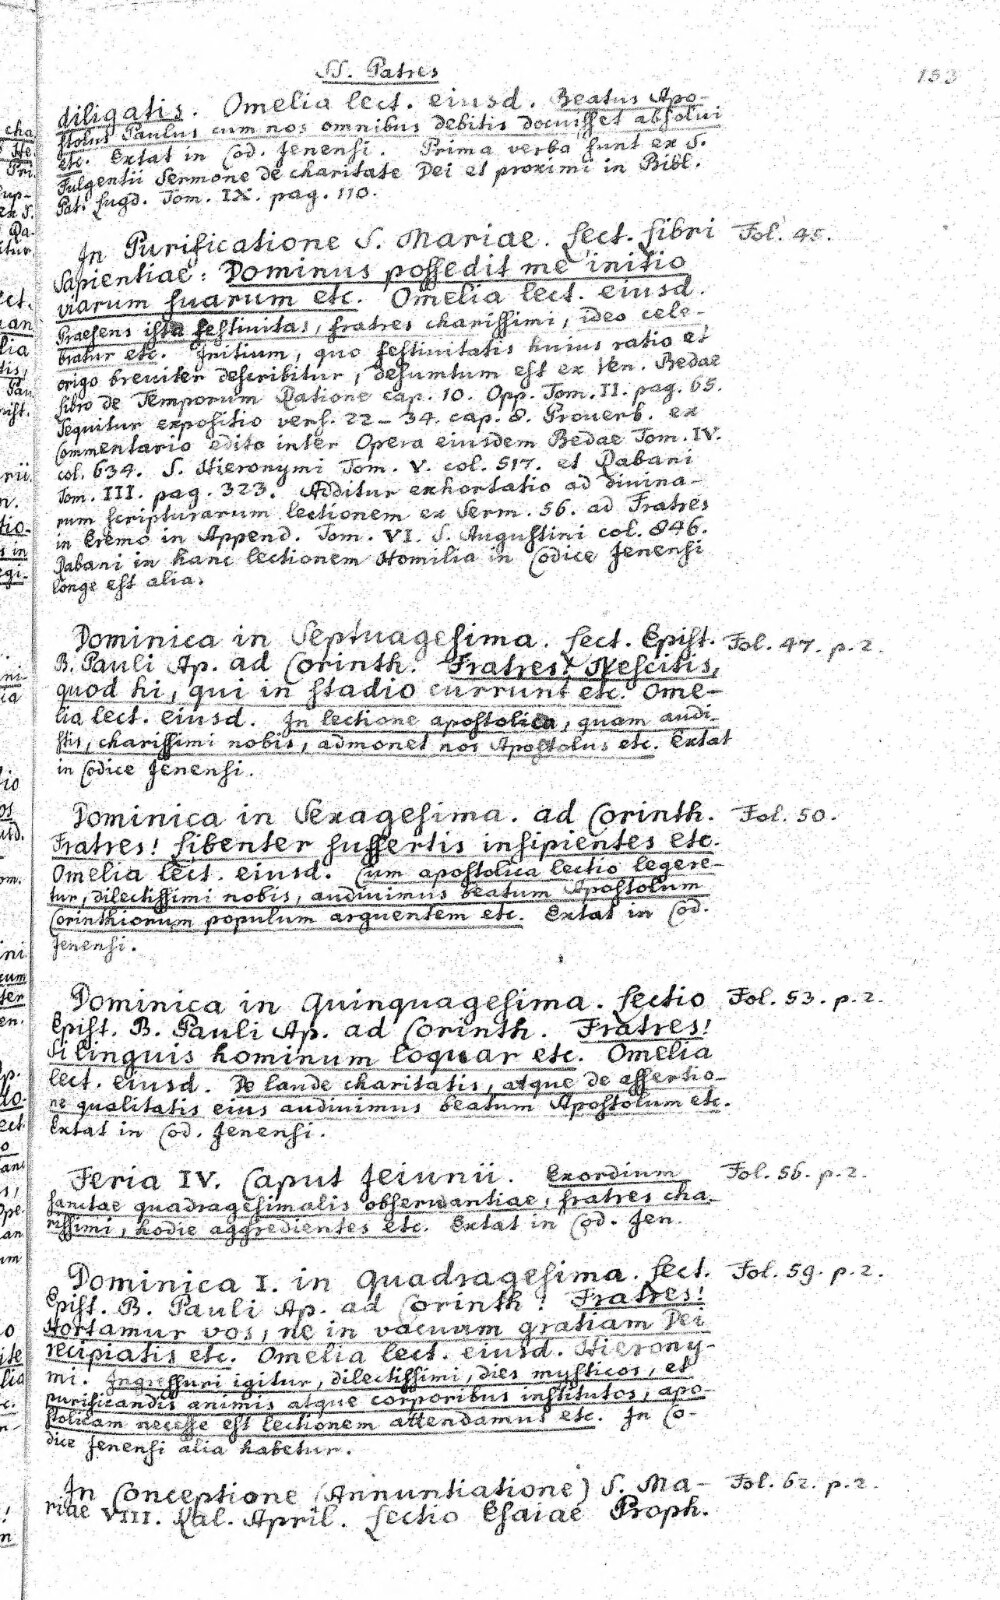 SS. Patres
153
diligatis. Omelia lect. eiusd. Beatus Apo-
stolus Paulus cum nos omnibus debitis docuisset absolui
etc. Extat in Cod. Jenensi. Prima verba sunt ex S.
Fulgentii Sermone de charitate Dei et proximi in Bibl.
Pat. Lugd. Tom. IX. pag. 110.
In Purificatione S. Mariae. Lect. Libri Fol. 45.
Sapientiae: Dominus possedit me initio
viarum suarum etc. Omelia lect. eiusd.
Praesens ista festiuitas, fratres charissimi, ideo cele-
bratur etc. Initium, quo festiuitatis huius ratio et
origo breuiter describitur, desumtum est ex Ven. Bedae
libro de Temporum Ratione cap. 10. Opp. Tom. II. pag. 65.
Sequitur expositio vers. 22 – 34. cap. 8. Prouerb. ex
Commentario edito inter Opera eiusdem Bedae Tom. IV.
col. 634. S. Hieronymi Tom. V. col. 517. et Rabani
Tom. III. pag. 323. Additur exhortatio ad diuina-
rum scripturarum lectionem ex Serm. 56. ad Fratres
in Eremo in Append. Tom. VI. S. Augustini col. 846.
Rabani in hanc lectionem Homilia in Codice Jenensi
longe est alia.
Dominica in Septuagesima. Lect. Epist. Fol. 47. p. 2.
B. Pauli Ap. ad Corinth. Fratres! Nescitis,
quod hi, qui in stadio currunt etc. Ome-
lia lect. eiusd. In lectione apostolica, quam audi-
stis, charissimi nobis, admonet nos Apostolus etc. Extat
in Codice Jenensi.
Dominica in Sexagesima. ad Corinth. Fol. 50.
Fratres! Libenter suffertis insipientes etc.
Omelia lect. eiusd. Cum apostolica lectio legere-
tur, dilectissimi nobis, audiuimus beatum Apostolum
Corinthiorum populum arguentem etc. Extat in Cod.
Jenensi.
Dominica in Quinquagesima. Lectio Fol. 53. p. 2.
Epist. B. Pauli Ap. ad Corinth. Fratres!
Si linguis hominum loquar etc. Omelia
lect. eiusd. De laude charitatis, atque de assertio-
ne qualitatis eius audiuimus beatum Apostolum etc.
Extat in Cod. Jenensi.
Feria IV. Caput Jeiunii. Exordium Fol. 56. p. 2.
sanctae quadragesimalis obseruantiae, fratres cha-
rissimi, hodie aggredientes etc. Extat in Cod. Jen.
Dominica I. in Quadragesima. Lect. Fol. 59. p. 2.
Epist. B. Pauli Ap. ad Corinth: Fratres!
Hortamur vos, ne in vacuum gratiam Dei
recipiatis etc. Omelia lect. eiusd. Hierony-
mi. Ingressuri igitur, dilectissimi, dies mysticos, et
purificandis animis atque corporibus institutos, apo-
stolicam necesse est lectionem attendamus etc. In Co-
dice Jenensi alia habetur.
In Conceptione (Annuntiatione) S. Ma- Fol. 62. p. 2.
riae VIII. Kal. April. Lectio Esaiae Proph.